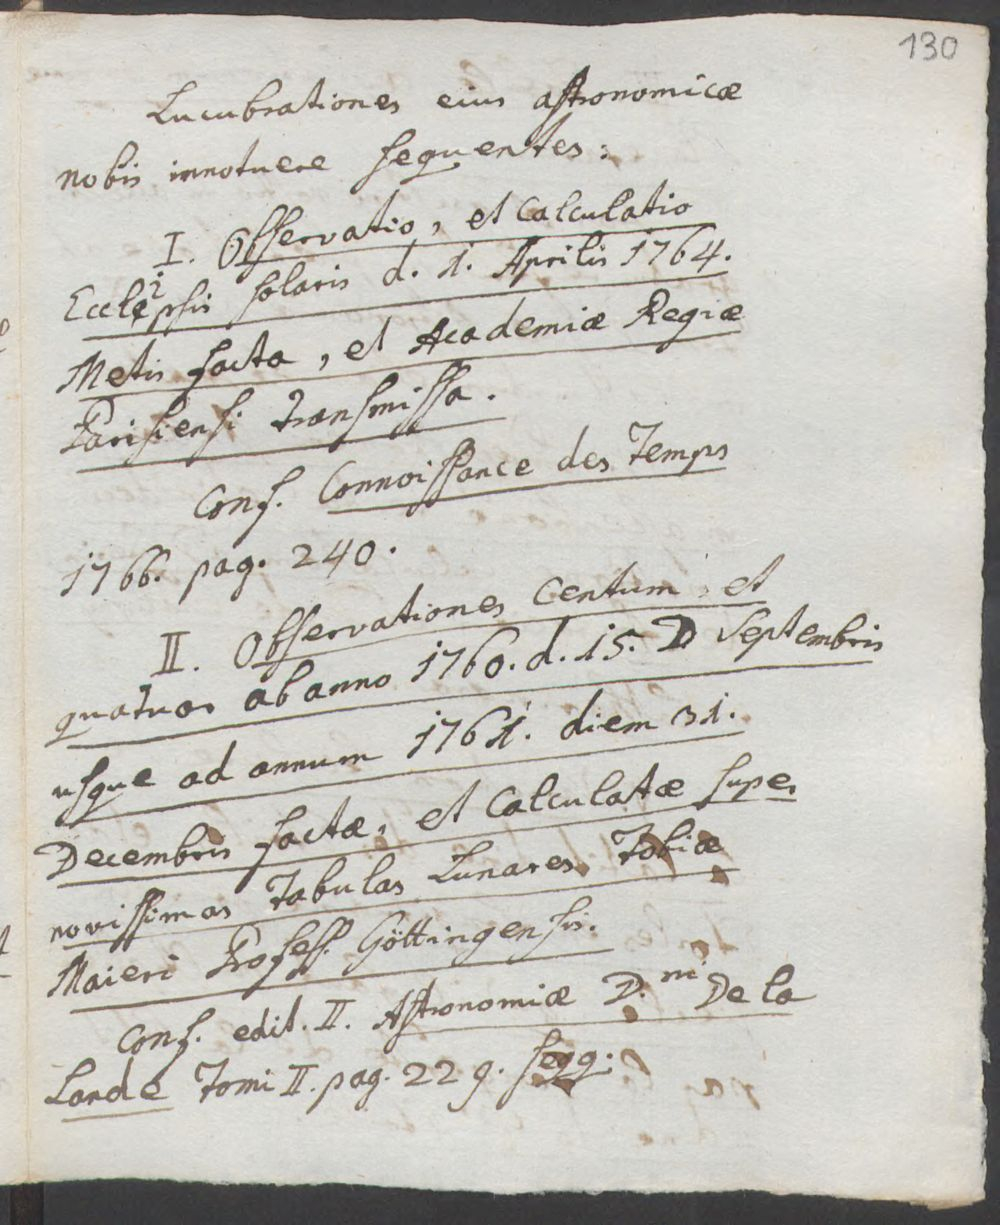 130
Lucubrationes eius astronomicæ
nobis innotuere sequentes:
I. Observatio, et calculatio
Ecclipsis solaris d. 1. Aprilis 1764.
Metis facta, et Academiæ Regiæ
Parisiensi transmissa.
Conf. Connoissance des Temps
1766. pag. 240.
II. Observationes centum, et
quatuor ab anno 1760. d. 15. D Septembris
usque ad annum 1761. diem 31.
Decembris factæ, et calculatæ super
novissimas Tabulas Lunares Tobiæ
Maieri Profess. Göttingensis.
Conf. edit. II. Astronomiæ D.ni De la
Lande Tomi II. pag. 229. seqq.